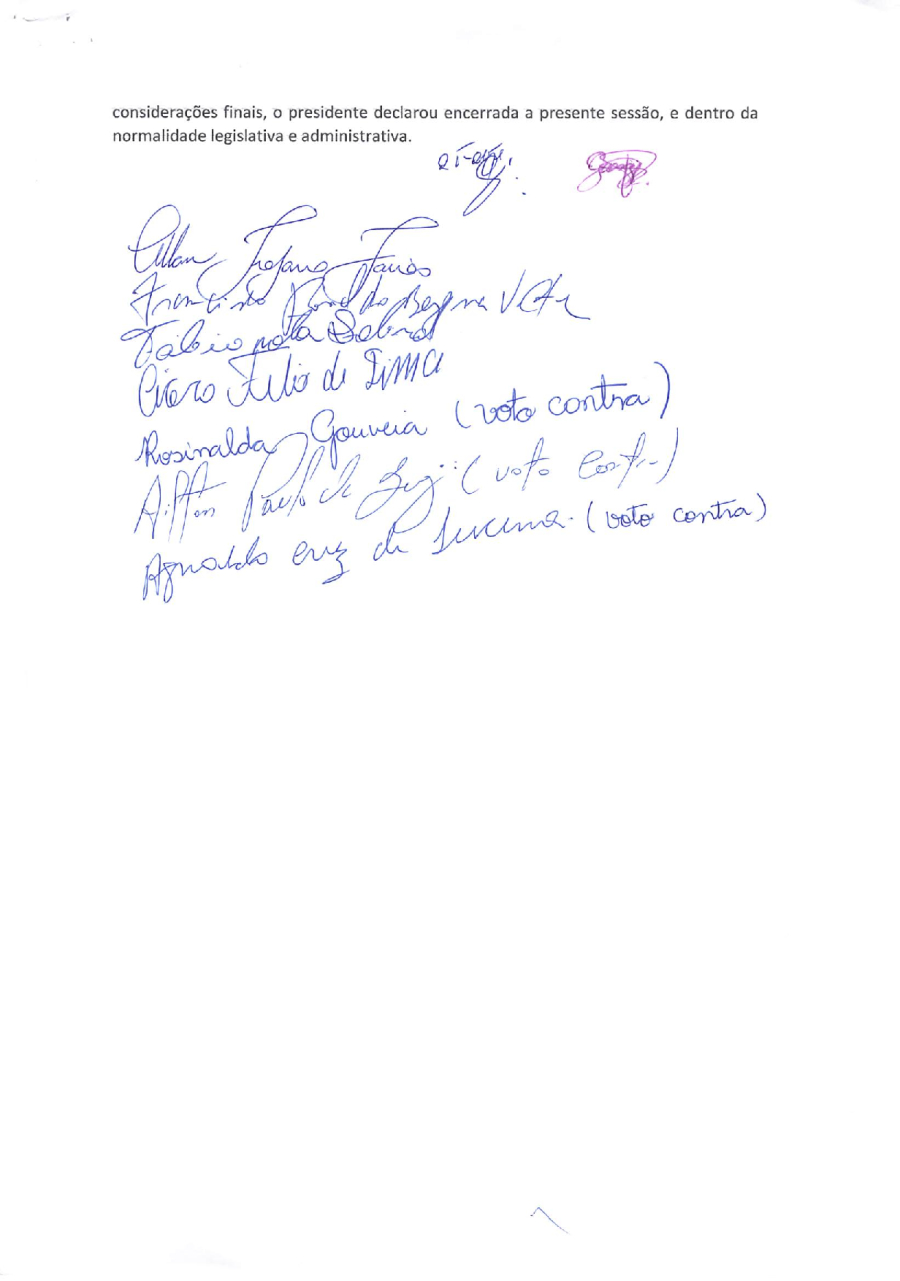 considerações finais, o presidente declarou encerrada a presente sessão, e dentro da
normalidade legislativa e administrativa.
Allan
Francisco Bezerra
Fábio Mota
Cícero Julio de LIMA
Rosinalda Gouveia (voto contra)
Ailton Paulo de (voto contra)
Agnaldo cruz de Lucena. (voto contra)